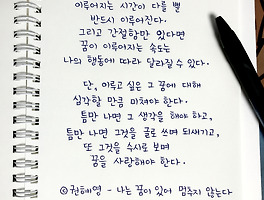 이루어지는 시간이 다를 뿐
반드시 이루어진다.
그리고 간절함만 있다면
꿈이 이루어지는 속도는
나의 행동에 따라 달라질 수 있다.
단, 이루고 싶은 그 꿈에 대해
심각할 만큼 미쳐야 한다.
틈만 나면 그 생각을 해야 하고,
틈만 나면 그것을 글로 쓰며 되새기고,
또 그것을 수시로 보며
꿈을 사랑해야 한다.
ⓒ 권혜영 - 나는 꿈이 있어 멈추지 않는다